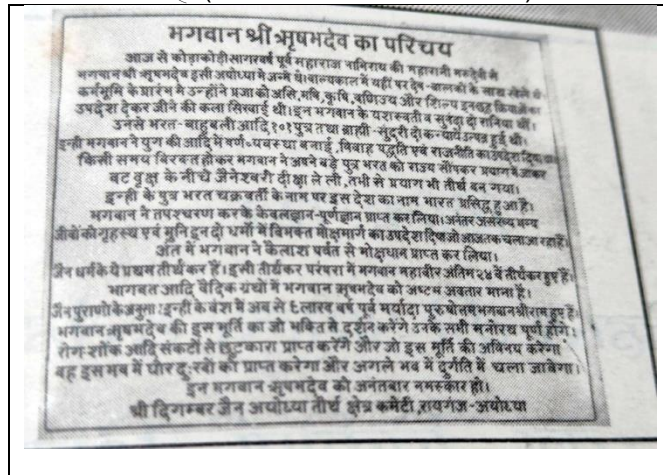 भगवान श्री ऋषभदेव का परिचय
आज से कोड़ाकोड़ी सागर वर्ष पूर्व महाराज नाभिराय की महारानी मरुदेवी से
भगवान श्री ऋषभदेव इसी अयोध्या में जन्मे थे। बाल्यकाल में यहीं पर देव-बालकों के साथ खेले थे
कर्मभूमि के प्रारंभ में उन्होंने प्रजा को असि, मषि, कृषि, वणिज्य और शिल्प इन छह क्रियाओं का
उपदेश देकर जीने की कला सिखाई थी। इन भगवान के यशस्वती व सुनंदा दो रानियां थीं।
उनसे भरत-बाहुबली आदि १०१ पुत्र तथा ब्राह्मी-सुंदरी दो कन्यायें उत्पन्न हुई थीं।
इन्हीं भगवान ने युग की आदि में वर्ण व्यवस्था बनाई, विवाह पद्धति एवं राजनीति का उपदेश दिया
किसी समय विरक्त होकर भगवान ने अपने बड़े पुत्र भरत को राज्य सौंपकर प्रयाग में जाकर
वट वृक्ष के नीचे जैनेश्वरी दीक्षा ले ली, तभी से प्रयाग भी तीर्थ बन गया।
इन्हीं के पुत्र भरत चक्रवर्ती के नाम पर इस देश का नाम भारत प्रसिद्ध हुआ है।
भगवान ने तपश्चरण करके केवलज्ञान-पूर्णज्ञान प्राप्त कर लिया। अनंतर असंख्य भव्य
जीवों को गृहस्थ एवं मुनि इन दो धर्मों में विभक्त मोक्षमार्ग का उपदेश दिया जो आजतक चला आ रहा है।
अंत में भगवान ने कैलाश पर्वत से मोक्षधाम प्राप्त कर लिया।
जैन धर्म के ये प्रथम तीर्थंकर हैं। इसी तीर्थंकर परंपरा में भगवान महावीर अंतिम २४ वें तीर्थंकर हुए हैं।
भागवत आदि वैदिक ग्रंथों में भगवान ऋषभदेव को अष्टम अवतार माना है।
जैन पुराणों के अनुसार इन्हीं के वंश में अब से ९ लाख वर्ष पूर्व मर्यादा पुरुषोत्तम भगवान श्रीराम हुए हैं।
भगवान ऋषभदेव की इस मूर्ति का जो भक्ति से दर्शन करेंगे उनके सभी मनोरथ पूर्ण होंगे।
रोग-शोक आदि संकटों से छुटकारा प्राप्त करेंगे और जो इस मूर्ति की अविनय करेगा
वह इस भव में घोर दुःखों को प्राप्त करेगा और अगले भव में दुर्गति में चला जावेगा।
इन भगवान ऋषभदेव को अनंतबार नमस्कार हो।
श्री दिगम्बर जैन अयोध्या तीर्थ क्षेत्र कमेटी, रायगंज-अयोध्या